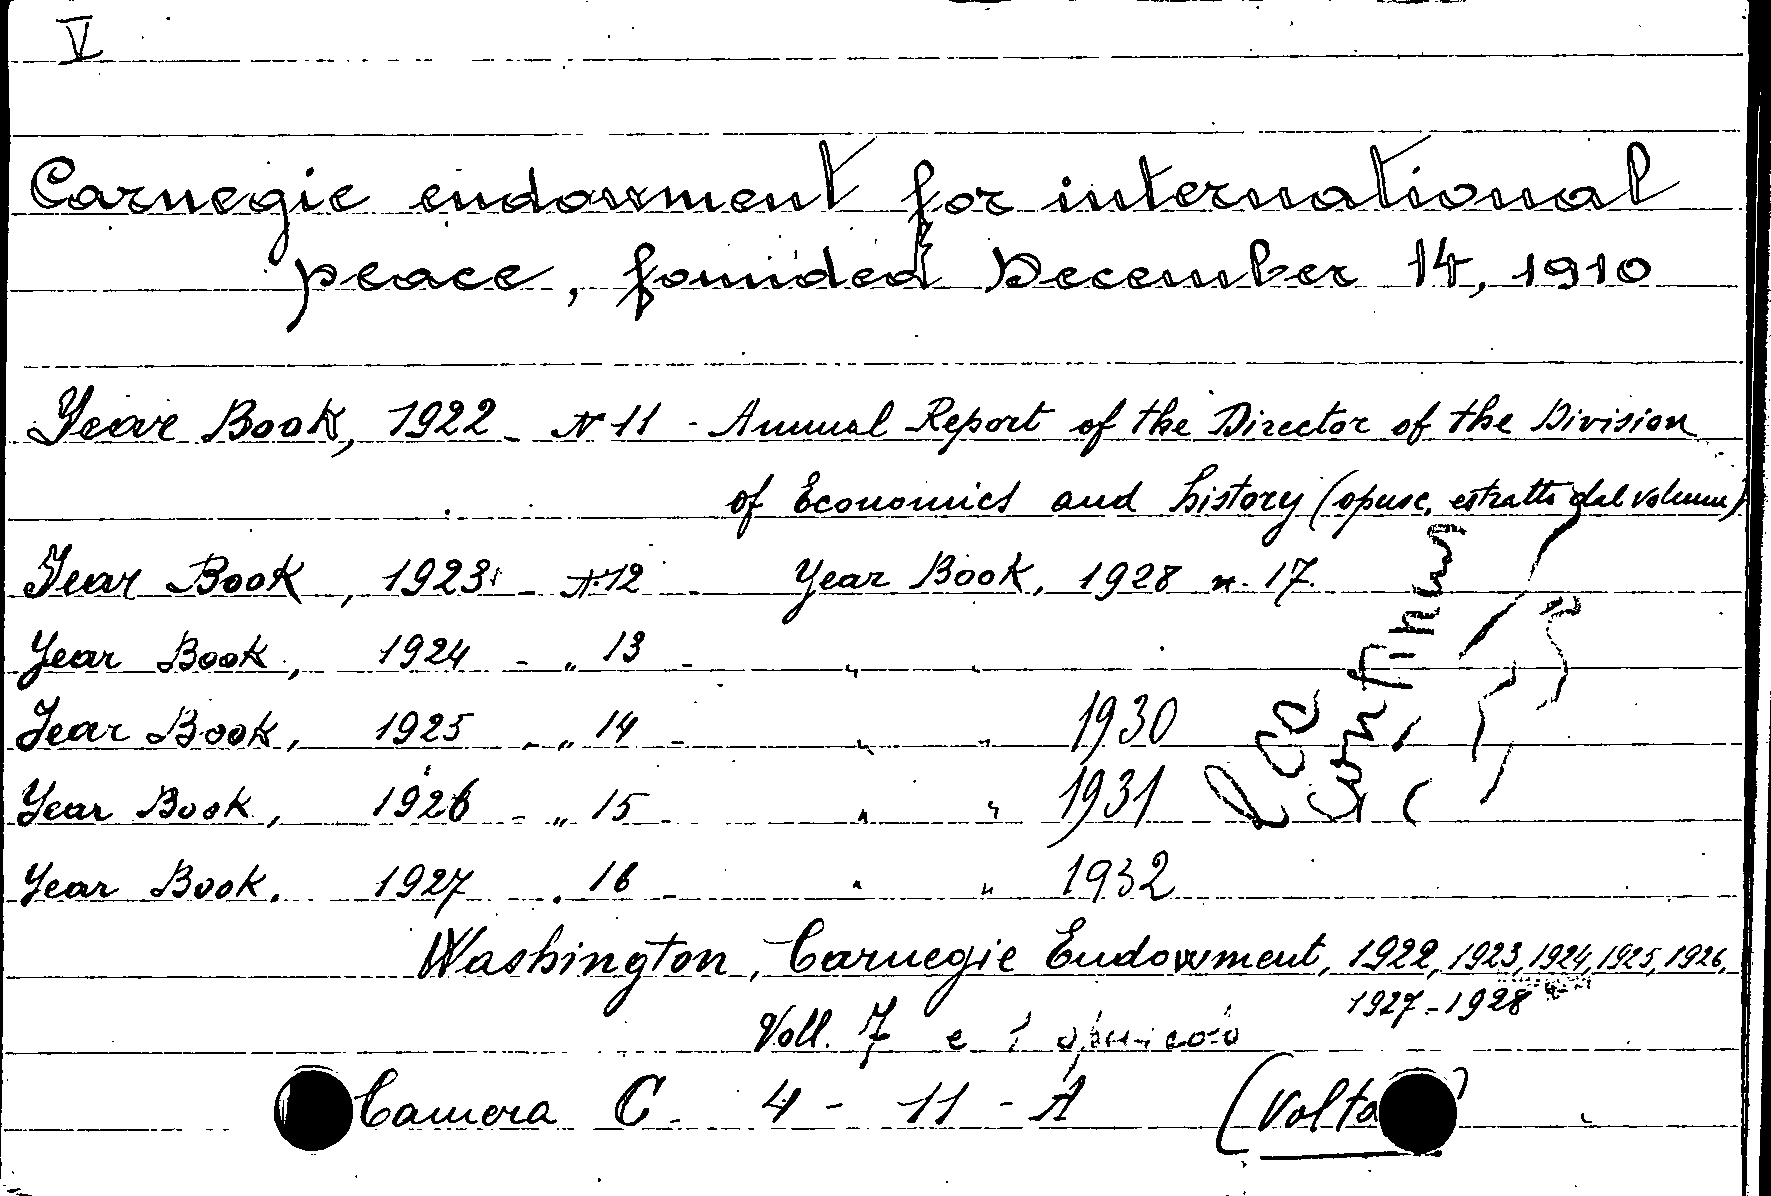 V
Carnegie endowment for international
peace, founded December 14, 1910
Year Book, 1922 - N 11 - Annual Report of the Director of the Division
of Economics and history (opusc. estratto dal volume)
Year Book, 1923 - N. 12 - Year Book, 1928 n. 17.
Year Book, 1924 - „ 13 - „ „
Year Book, 1925 - „ 14 - „ „ 1930
Year Book, 1926 - „ 15 - „ „ 1931
Year Book. 1927 . 16 - „ „ 1932
Washington, Carnegie Endowment, 1922, 1923, 1924, 1925, 1926,
1927-1928
Voll. 7 e 1 opuscolo
Camera C. 4 - 11 - A (Volta